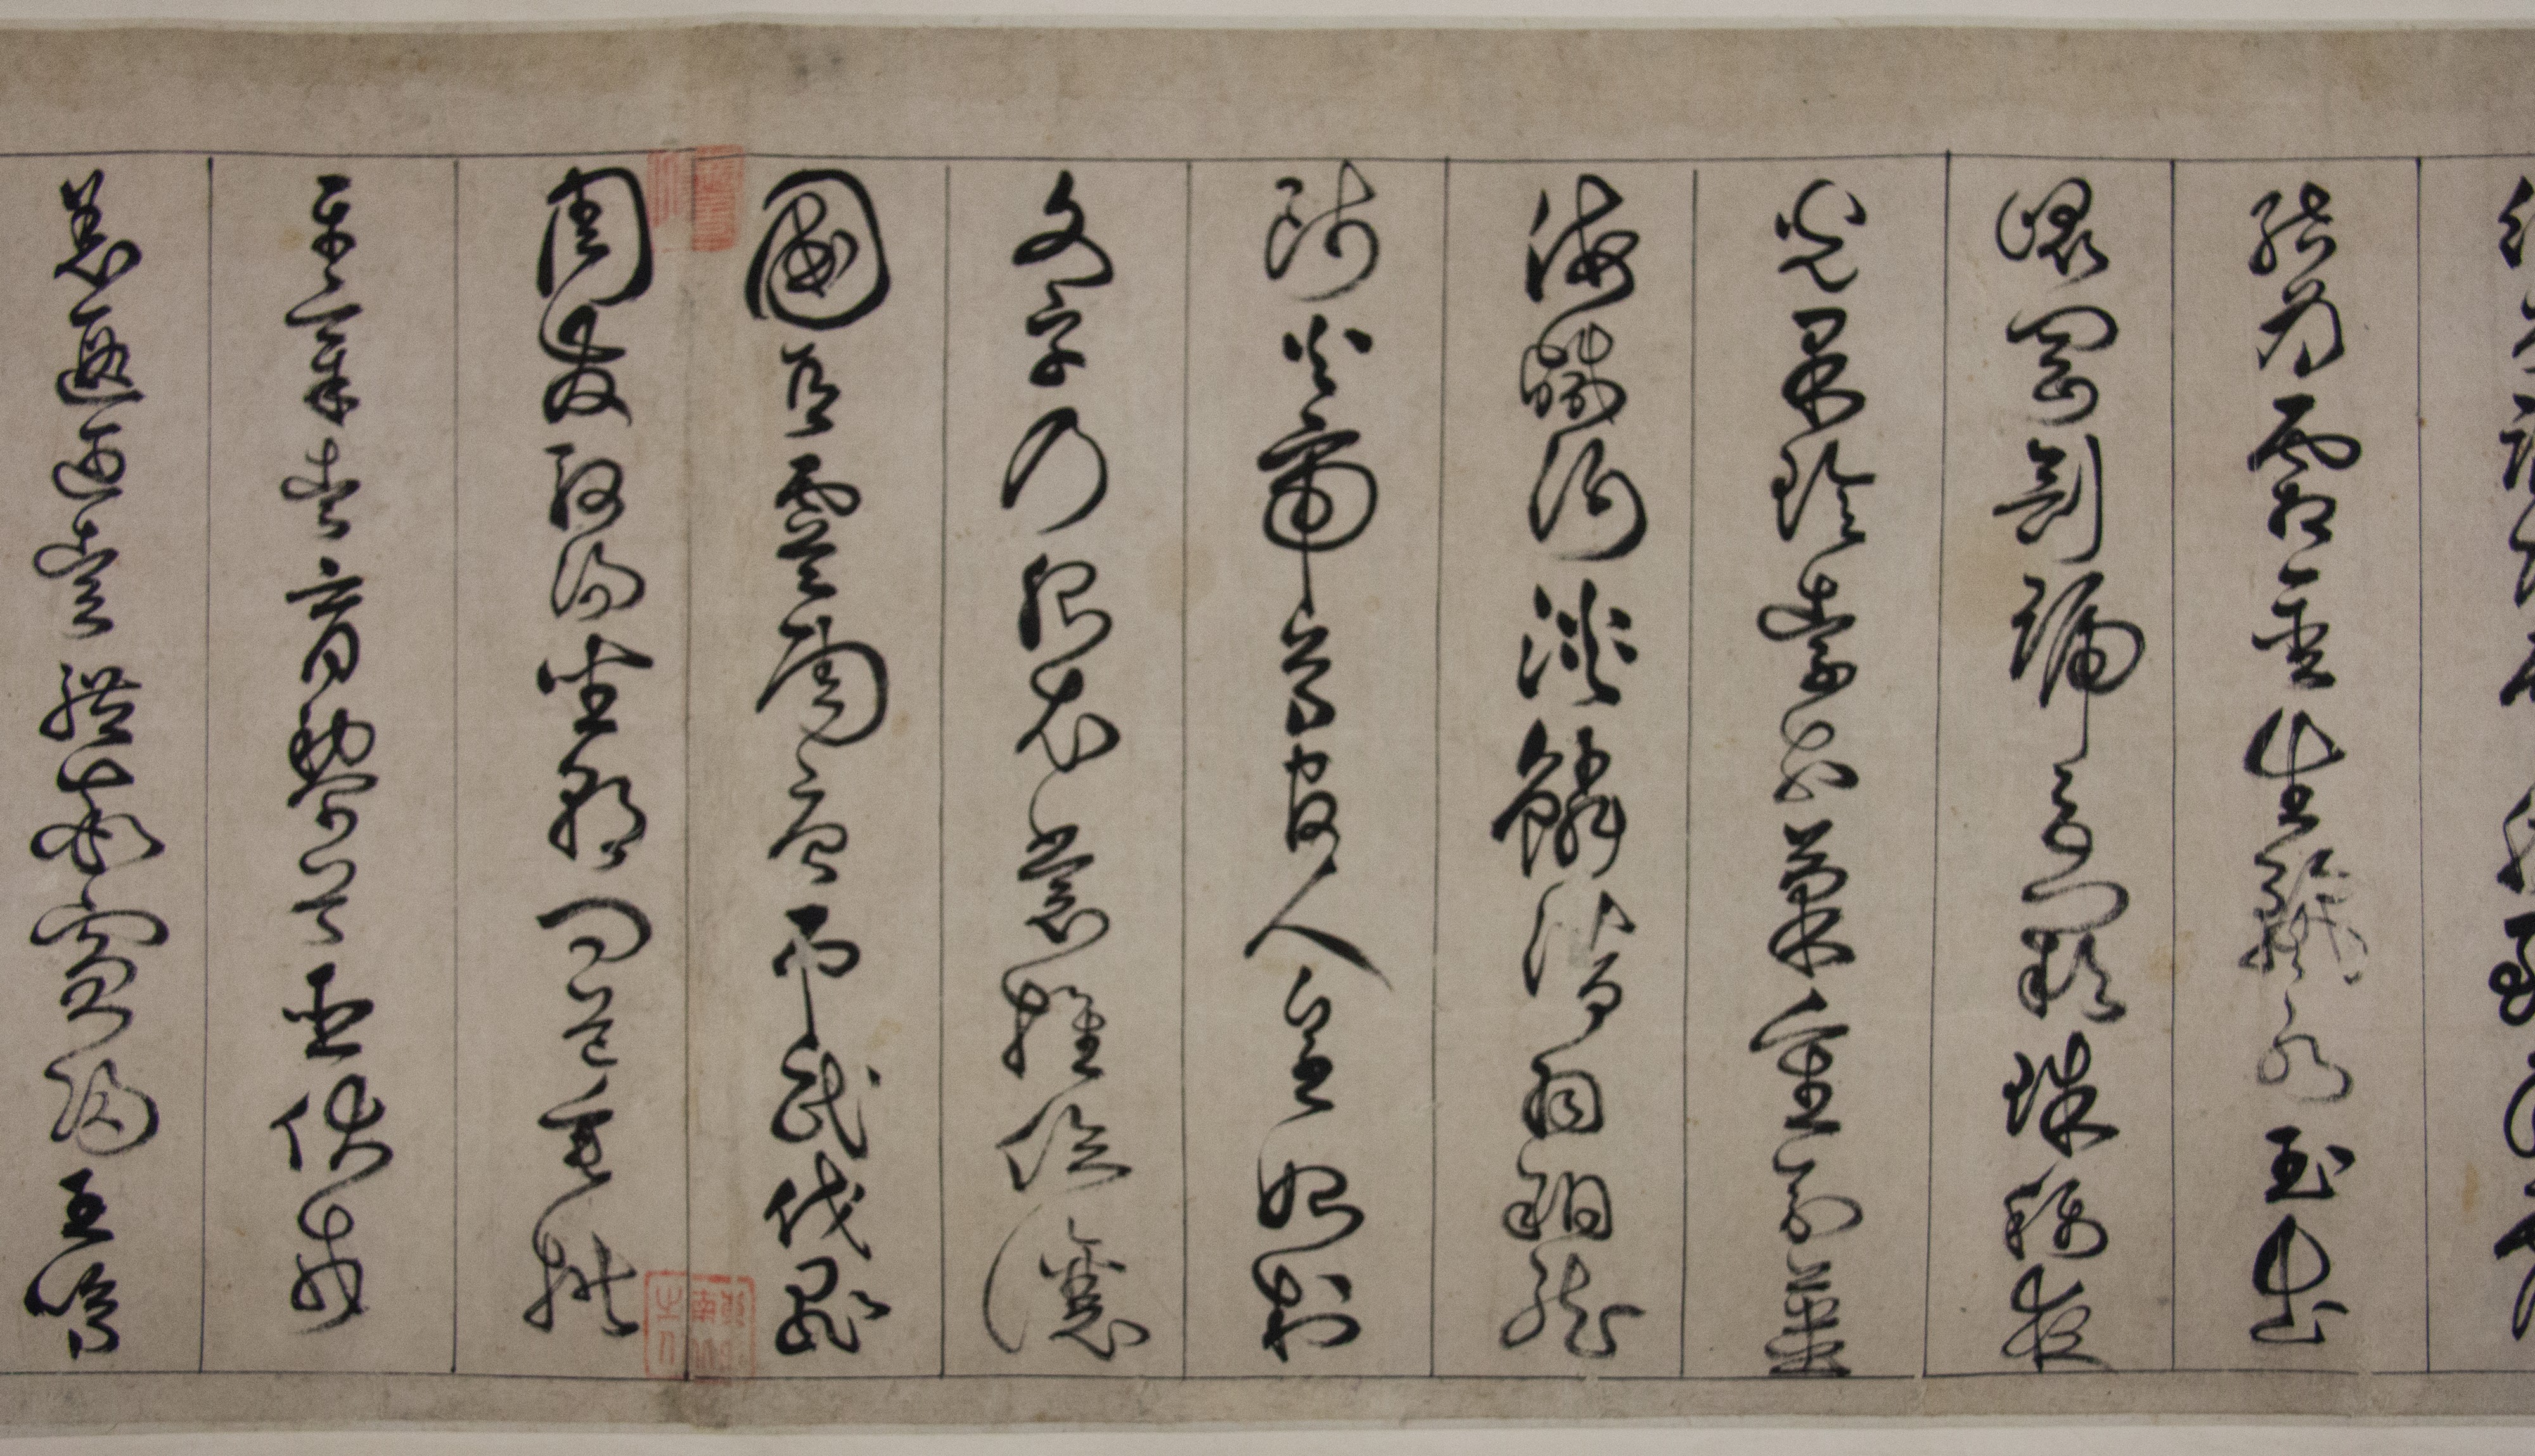 結為霜金生麗水玉出
崑岡劍號巨闕珠稱夜
光果珍李柰菜重芥薑
海鹹河淡鱗潛羽翔龍
師火帝鳥官人皇始制
文字乃服衣裳推位讓
國有虞陶唐弔民伐罪
周發殷湯坐朝問道垂拱
平章愛育黎首臣伏戎
羌遐邇壹體率賓歸王鳴